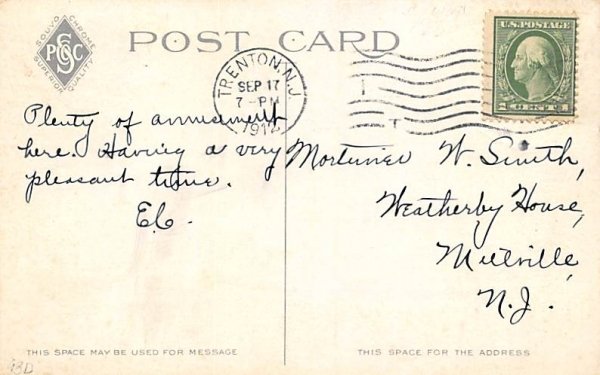 SOUVO CHROME
PCSC
SUPERIOR QUALITY
POST CARD
TRENTON, N.J.
SEP 17
7-PM
1912
U.S. POSTAGE
1 CENT 1
Plenty of amusement
here. Having a very
pleasant time.
E.C.
Mortimer W. Smith,
Weatherby House,
Millville
N.J.
THIS SPACE MAY BE USED FOR MESSAGE
THIS SPACE IS FOR THE ADDRESS